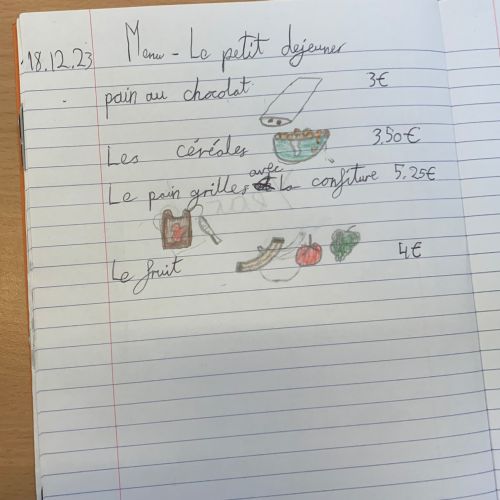 18.12.23 Menu - Le petit dejeuner
pain au chocolat 3€
Les céréales 3,50€
Le pain grilles avec la confiture 5.25€
Le fruit 4€